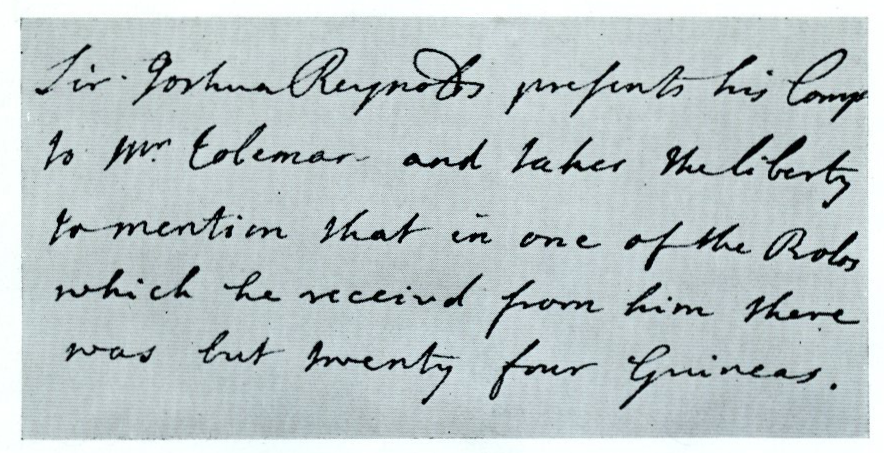 Sir Joshua Reynolds presents his Comp
to Mr. Coleman and takes the liberty
to mention that in one of the Rolos
which he received from him there
was but twenty four Guineas.